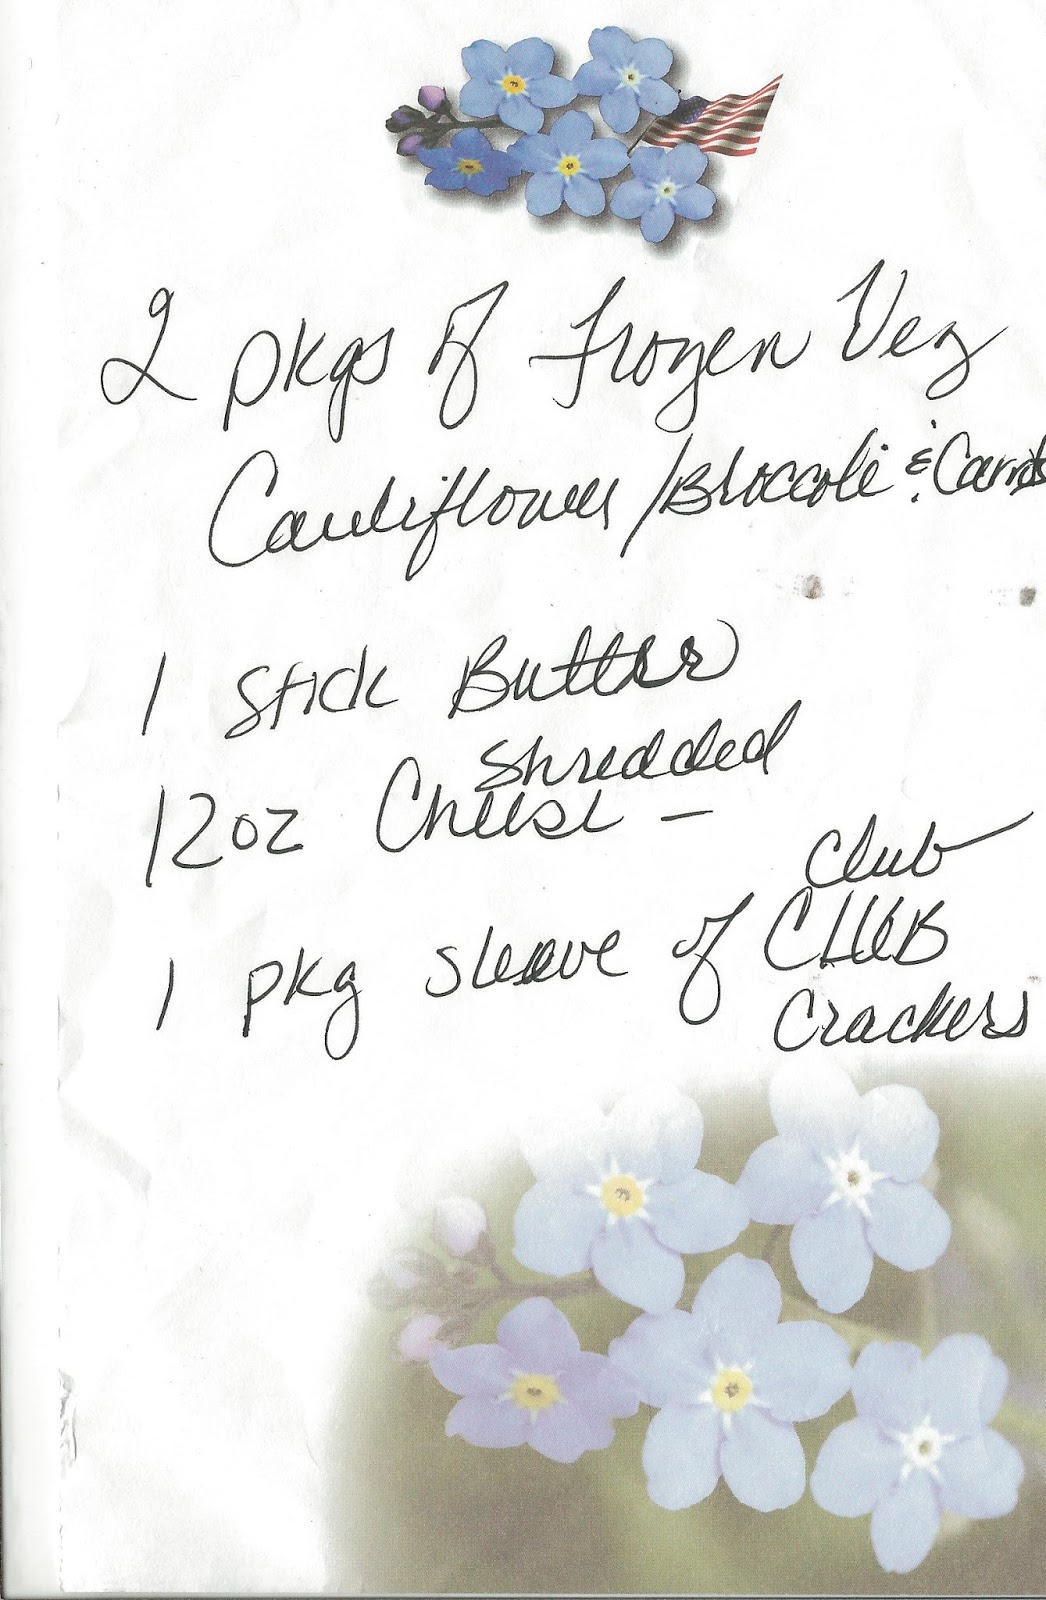 2 pkgs of Frozen Veg
Cauliflower/Broccoli & Carrots
1 Stick Butter
Shredded
12oz Cheese –
Club
1 pkg sleeve of CLUB
Crackers